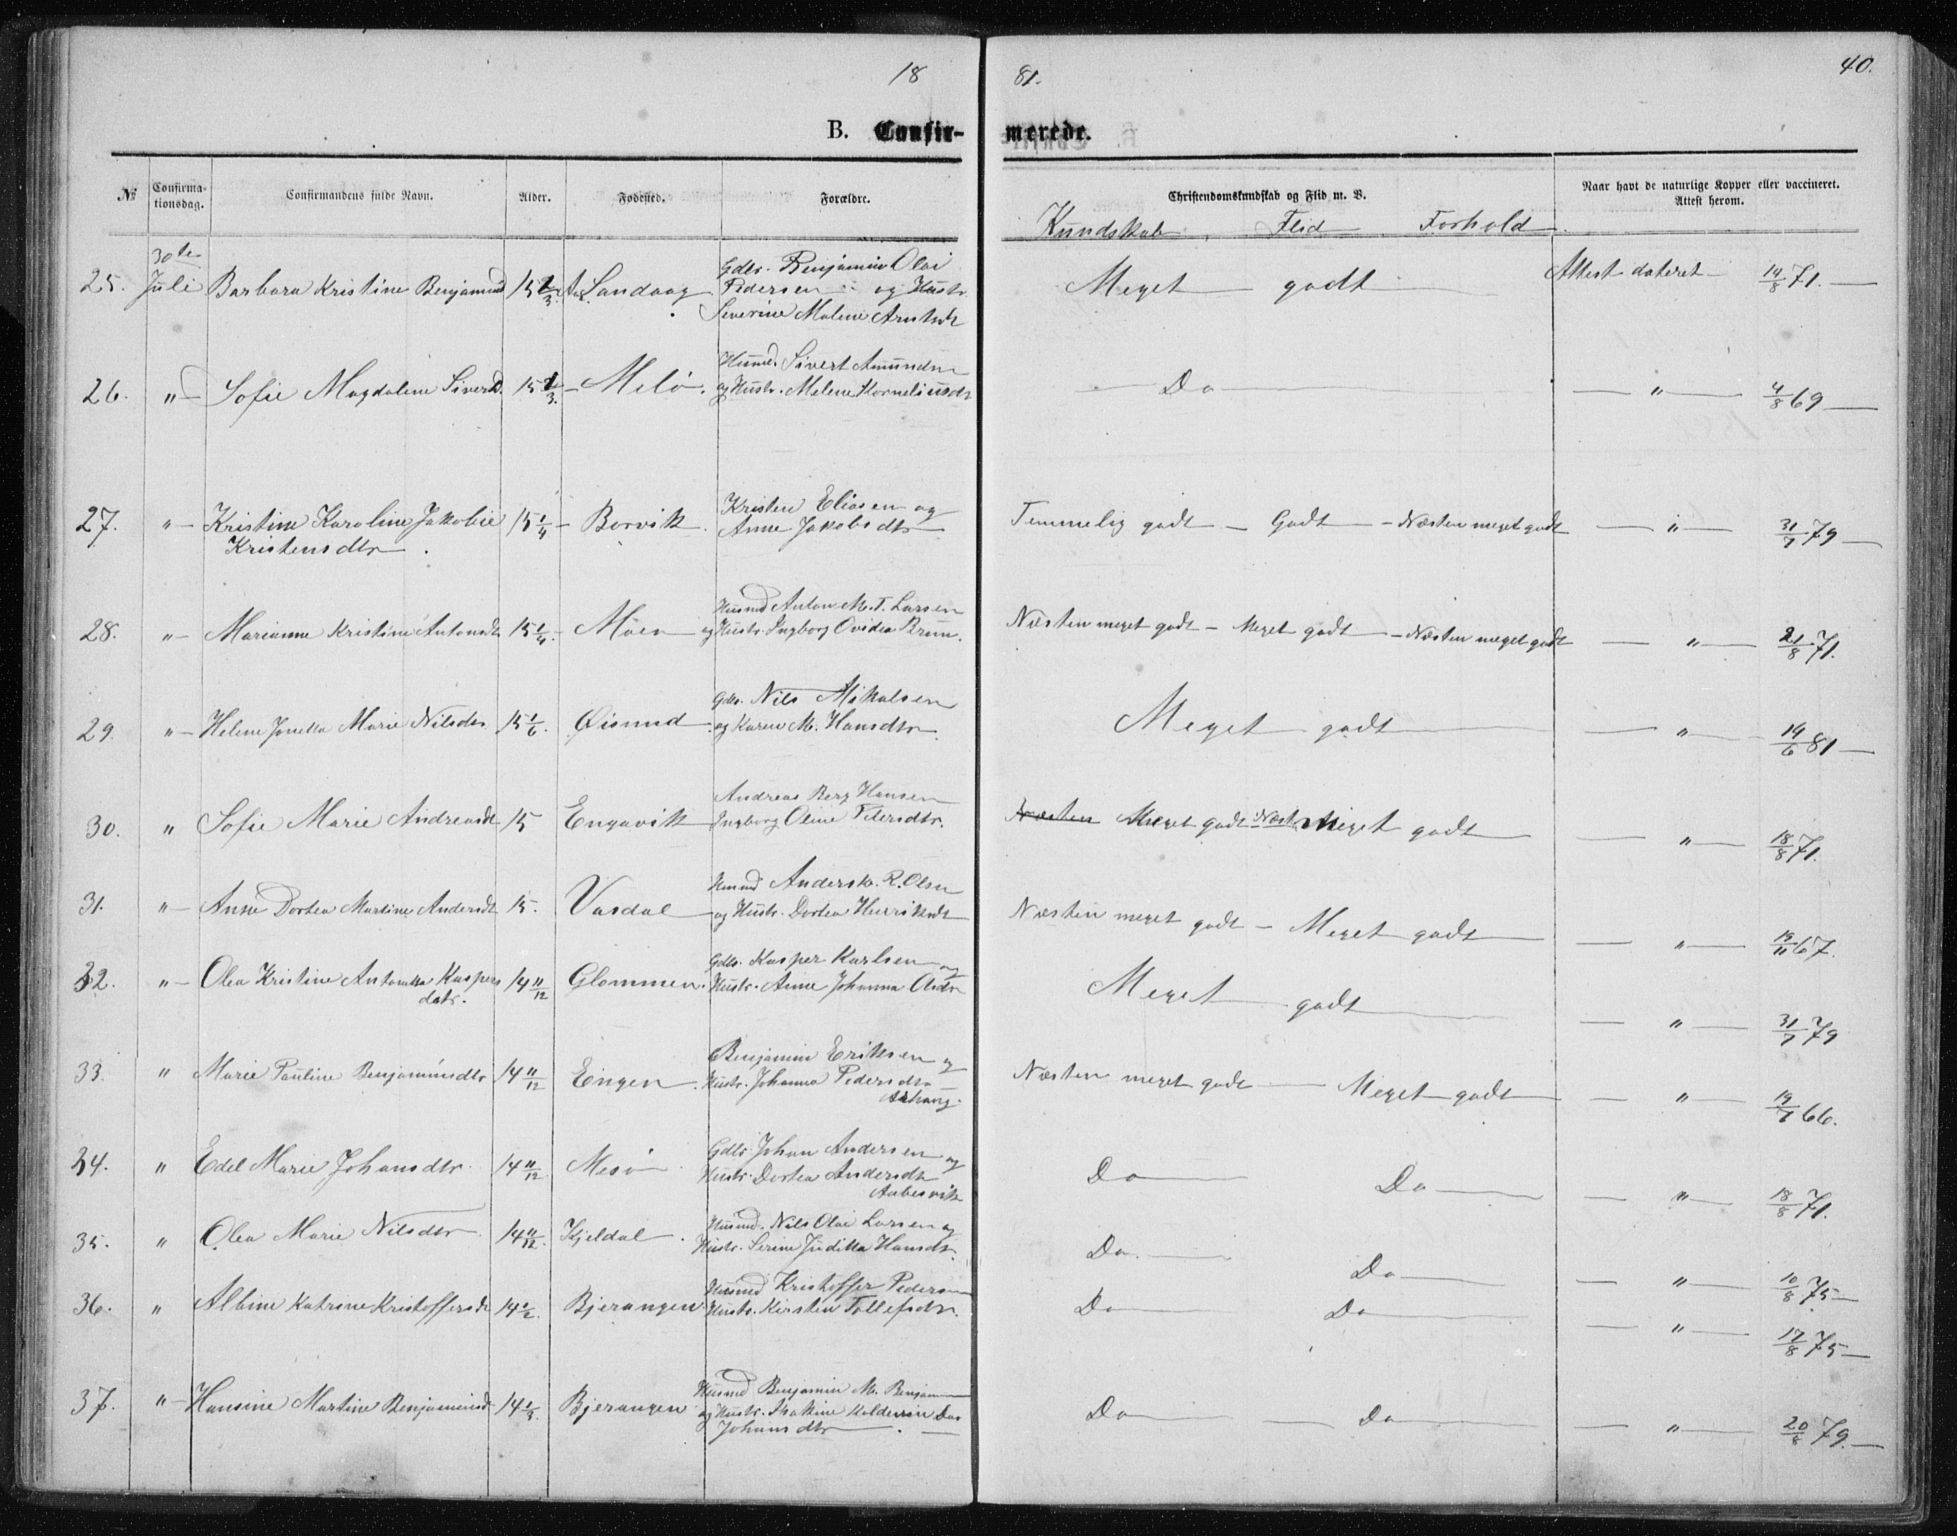 18 81. 40.
B. Confirmerede.
№ Confirmationsdag. Confirmandens fulde Navn. Alder. Fødested. Forældre. Christendomskundskab og Flid m. V. Naar havt de naturlige Kopper eller vaccineret. Attest herom.
Kundskab Flid Forhold
30te
25. Juli Barbara Kristine Benjamind 15 Sandaag Gdbr. Benjamin Olai
Pedersen og Hustr.
Severine Malene Arntsdt
Meget godt Attest dateret 19/8 71.
26. " Sofie Magdalene Siverd. 15 1/3 Melø. Husmd. Sivert Amundsn
og Hustr. Melene Korneliusdt
Do " 4/8 69
27. " Kristine Karoline Jakobie 15 1/4 Borvik Kristen Eliasen og
Kristensdtr. Anne Jakobsdtr
Temmelig godt Godt Næsten meget godt " 31/7 79
28. " Marianne Kristine Antonsdt 15 1/4 Moen Husmd Anton M. T. Larsen
og Hustr. Ingborg Ovidea Brun.
Næsten meget godt - Meget godt - Næsten meget godt " 21/8 71.
29. " Helene Jonetta Marie Nilsdtr 15 1/6. Øisund Gdbr. Nils Mikalsen
og Karen M. Hansdtr
Meget godt " 19/6 81
30. " Sofie Marie Andreasdt 15 Engavik Andreas Berg Hansen
Ingborg Oline Petersdtr.
Næsten Meget godt Næst Meget godt " 18/8 71.
31. " Anne Dortea Martine Andersdt 15. Vasdal Husmd Anders R. Olsn
og Hustr. Dortea Henriksdt
Næsten meget godt - Meget godt " 19/11 67.
32. " Olea Kristine Antonette Kaspers 14 11/12 Glommen. Gdbr. Kasper Karlsen og
datr. Hustr. Anne Johanna Olsdtr
Meget godt " 31/7 79
33. " Marie Pauline Benjaminsdtr 14 11/12 Eingen. Benjamin Eriksen og
Hustr. Johanna Pedersdtr
Næsten meget godt Meget godt " 19/7 66.
34. " Edel Marie Johansdtr. 14 11/12 Mesø Gdbr Johan Andersen og
Hustr. Dortea Andersdt
Do Do " 18/8 71.
35. " Olea Marie Nilsdtr 14 11/12. Kjeldal. Husmd. Nils Olai Larsen og
Hustr. Serine Juditta Hansdt.
Do. Do " 10/8 75
36. " Albine Katrine Kristoffersdt 14 1/2. Bjerangen Husmd Kristoffer Pedersen
Hustr. Kirsten Tollefsdtr.
Do Do " 17/8 75
37. " Hansine Martine Benjaminsd 14 1/3. Bjerangen Husmd Benjamin M. Benjamin
og Hustr.
Johansdtr.
Do Do " 20/8 79.